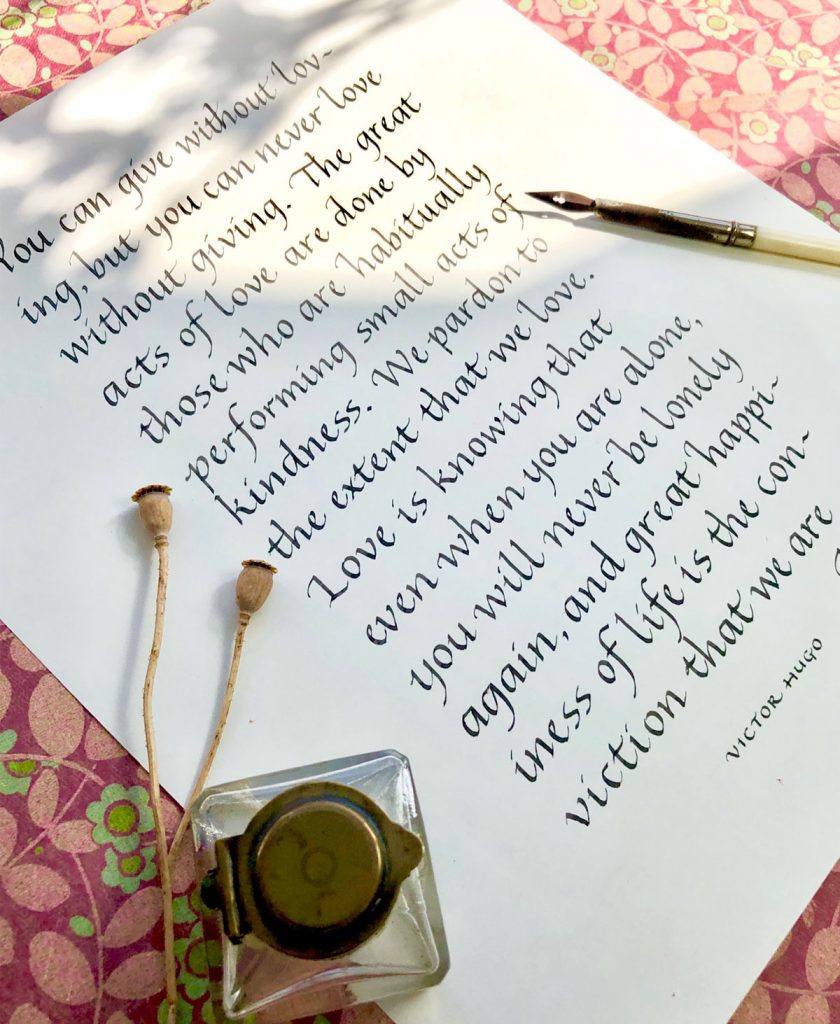 You can give without lov-
ing, but you can never love
without giving. The great
acts of love are done by
those who are habitually
performing small acts of
kindness. We pardon to
the extent that we love.
Love is knowing that
even when you are alone,
you will never be lonely
again, and great happi-
iness of life is the con-
viction that we are
VICTOR HUGO